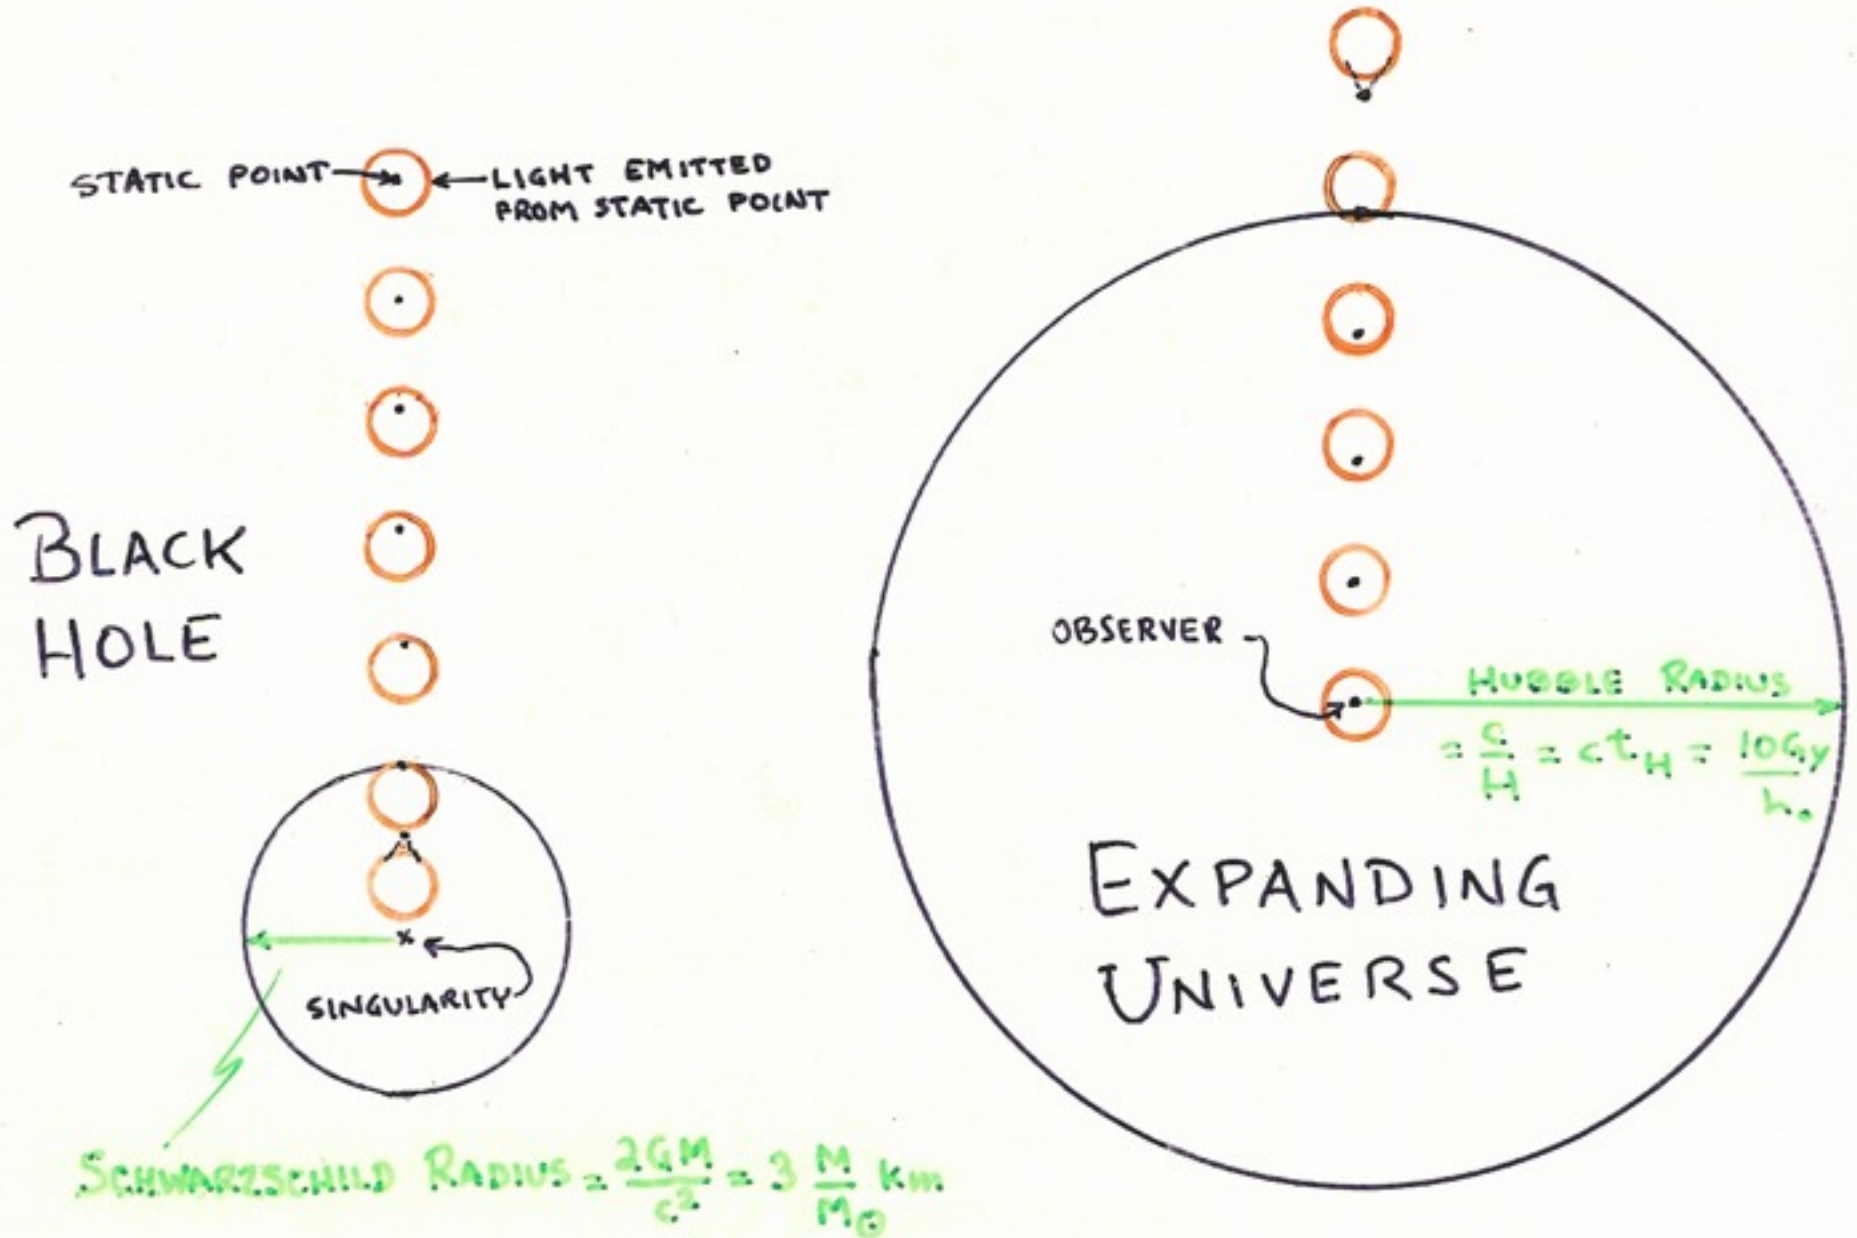 STATIC POINT
LIGHT EMITTED
FROM STATIC POINT
BLACK
HOLE
SINGULARITY
SCHWARZSCHILD RADIUS = 2GM/c² = 3 M/M☉ km
OBSERVER
HUBBLE RADIUS
= c/H = ct_H = 10Gy/h₀
EXPANDING
UNIVERSE